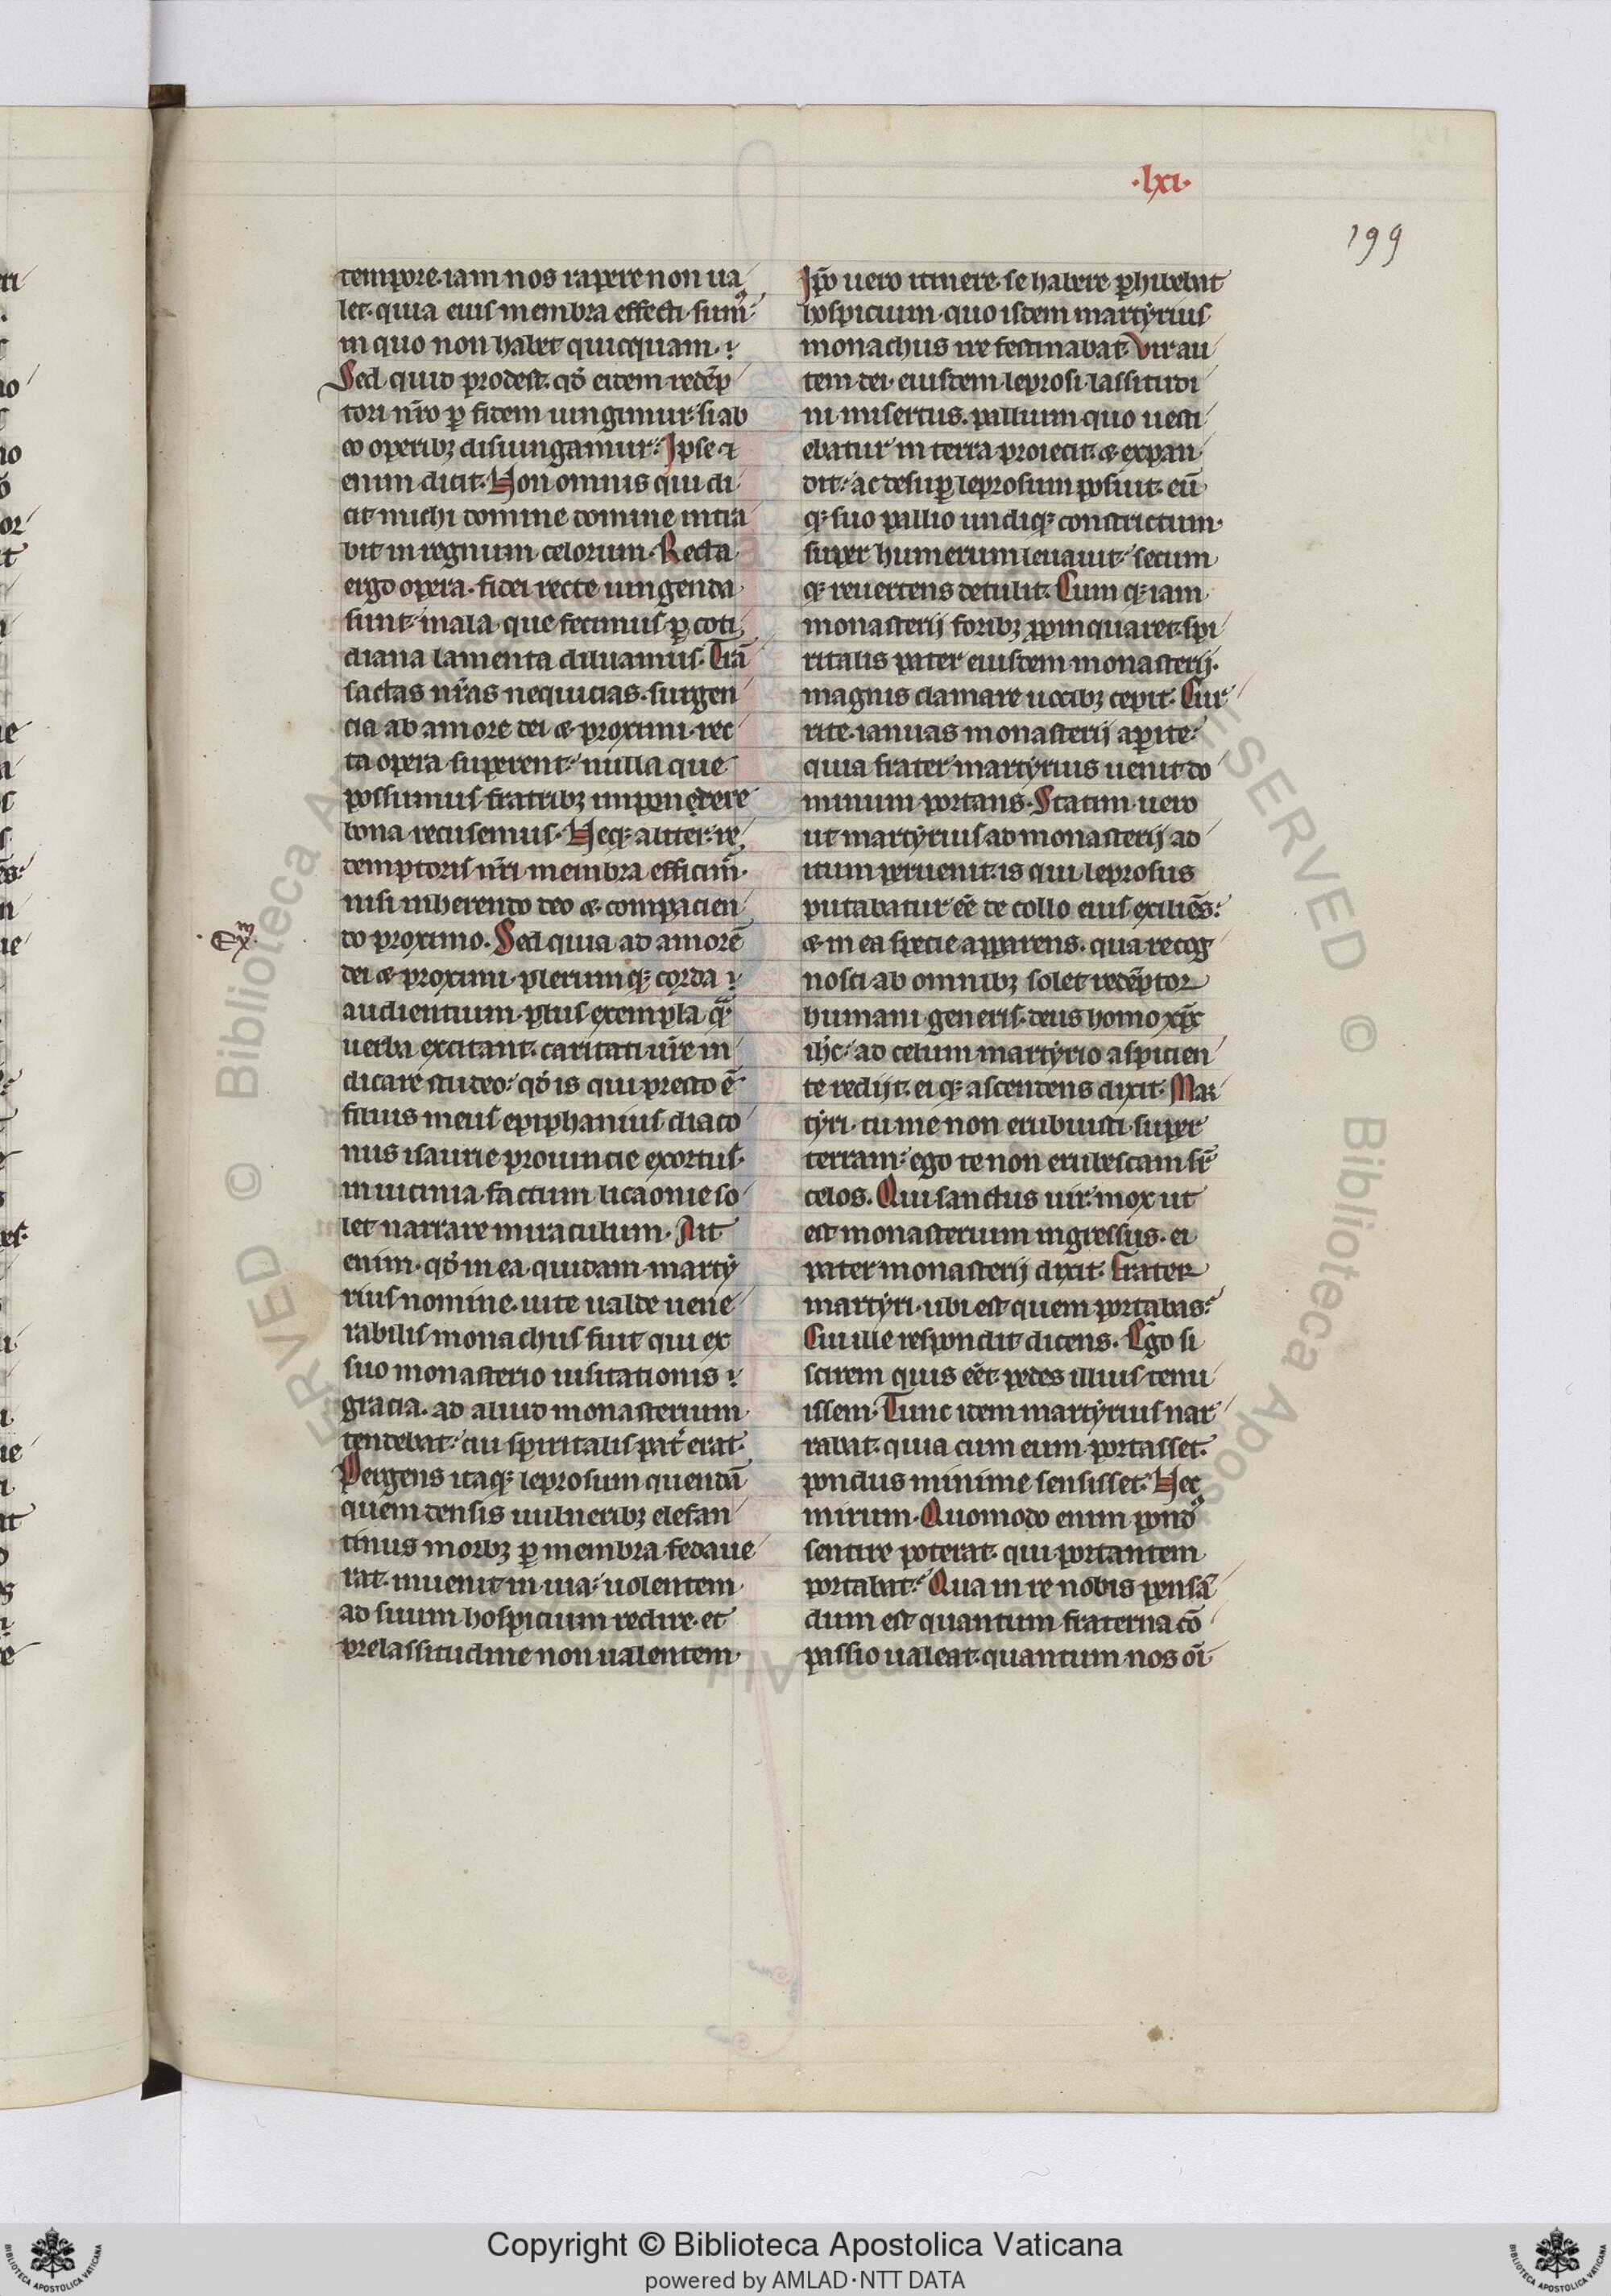 ·lxi·
199
tempore. iam nos rapere non ua
let. quia eius membra effecti sum᷒:
in quo non habet quicquam.
Sed quid prodest. qđ eidem redēp
tori nr̄o ꝑ fidem iungimur. si ab
eo operibꝫ disiungamur: Ipse
enim dicit. Non omnis qui di
cit michi domine domine intra
bit in regnum celorum. Recta
ergo opera. fidei recte iungenda
sunt. mala que fecimus ꝑ coti
diana lamenta diluamus. Trā
sactas nr̄as nequicias. surgen
cia ab amore dei & proximi. rec
ta opera superent. nulla que
possumus fratribꝫ impendere
bona recusemus. Neqꝫ aliter re
demptoris nr̄i membra efficim᷒.
nisi inherendo deo & compacien
Exm
do proximo. Sed quia ad amorē
dei & proximi. plerumqꝫ corda
audientium. plus exempla q̄
uerba excitant. caritati ur̄e in
dicare studeo: qđ is qui presto ē
filius meus epiphanius diaco
nus isaurie prouincie exortus.
in uicinia. factum licaonie so
let narrare miraculum. Ait
enim. qđ in ea quidam marty
rius nomine. uite ualde uene
rabilis monachus fuit qui ex
suo monasterio uisitationis
gracia. ad aliud monasterium
tendebat. cui spiritalis pat̄ erat.
Pergens itaqꝫ leprosum quendā
quem densis uulneribꝫ elefan
tinus morbꝫ ꝑ membra fedaue
rat. inuenit in uia. uolentem
ad suum hospicium redire. et
prelassitudine non ualentem.
Ip̄o uero itinere. se habere ꝑhibebat
hospicium. quo isdem martyrius
monachus ire festinabat. Vir au
tem dei. eiusdem leprosi lassitudi
ni misertus. pallium quo uesti
ebatur in terra proiecit. & expan
dit. ac desuꝑ leprosum posuit. eū
qꝫ suo pallio undiqꝫ constrictum.
super humerum leuauit. secum
qꝫ reuertens detulit. Cumqꝫ iam
monasterij foribꝫ ꝓpinquaret. spi
ritalis pater eiusdem monasterij.
magnis clamare uocibꝫ cepit. Cur
rite. ianuas monasterij aꝑite.
quia frater martyrius uenit do
minum portans. Statim uero
ut martyrius ad monasterij ad
itum peruenit. is qui leprosus
putabatur eē̄ de collo eius exiliēs:
& in ea specie apparens. qua recog
nosci ab omnibꝫ solet redēptor
humani generis. deus homo xp̄c
ih̄c. ad celum martyrio aspicien
te redijt. eiqꝫ ascendens dixit. Mar
tyri. tu me non erubuisti super
terram. ego te non erubescam sꝑ
celos. Qui sanctus uir. mox ut
est monasterium ingressus. ei
pater monasterij dixit. Frater
martyri. ubi est quem portabas:
Cui ille respondit dicens. Ego si
scirem quis eēt pedes illius tenu
issem. Tunc idem martyrius nar
rabat. quia cum eum portasset.
pondus minime sensisset. Nec
mirum. Quomodo enim pond᷒
sentire poterat. qui portantem
portabat: Qua in re nobis pensā
dum est quantum fraterna cō
passio ualeat. quantum nos oī
Copyright © Biblioteca Apostolica Vaticana
powered by AMLAD·NTT DATA